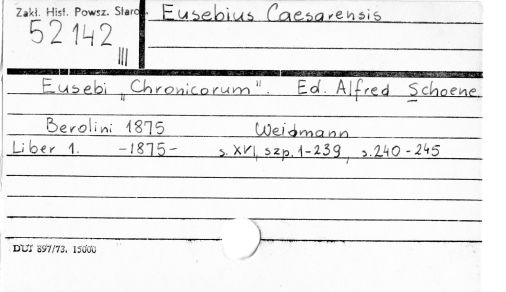 Zakł. Hist. Powsz. Staroż.
52142
III
Eusebius Caesarensis
Eusebi „Chronicorum". Ed. Alfred Schoene
Berolini 1875 Weidmann
Liber 1. -1875- s. XVI, szp. 1-239, s. 240-245
DUJ 897/73. 15000